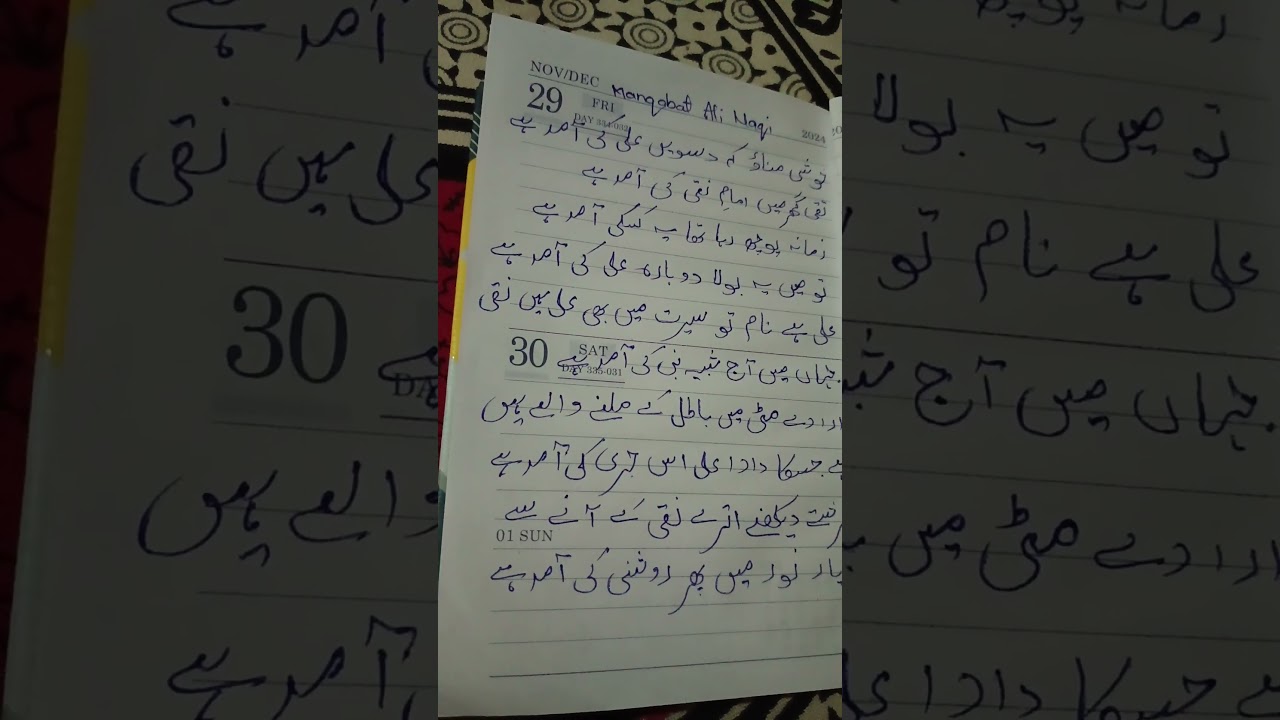 NOV/DEC
Manqabat Ali Naqi
29 FRI 2024
DAY 334-032
خوشی مناؤ کہ دسویں علی کی آمد ہے
تقی کے گھر میں امامِ نقی کی آمد ہے
زمانہ پوچھ رہا تھا یہ کسکی آمد ہے
تو میں یہ بولا دوبارہ علی کی آمد ہے
علی ہے نام تو سیرت میں بھی علی ہیں نقی
30 SAT
DAY 335-031
جہاں میں آج شبیہ نبی کی آمد ہے
ارادے مٹی میں باطل کے ملنے والے ہیں
ہے جسکا دادا علی اس جری کی آمد ہے
دیکھنے اترے نقی کے آنے سے
01 SUN
نور میں پھر روشنی کی آمد ہے